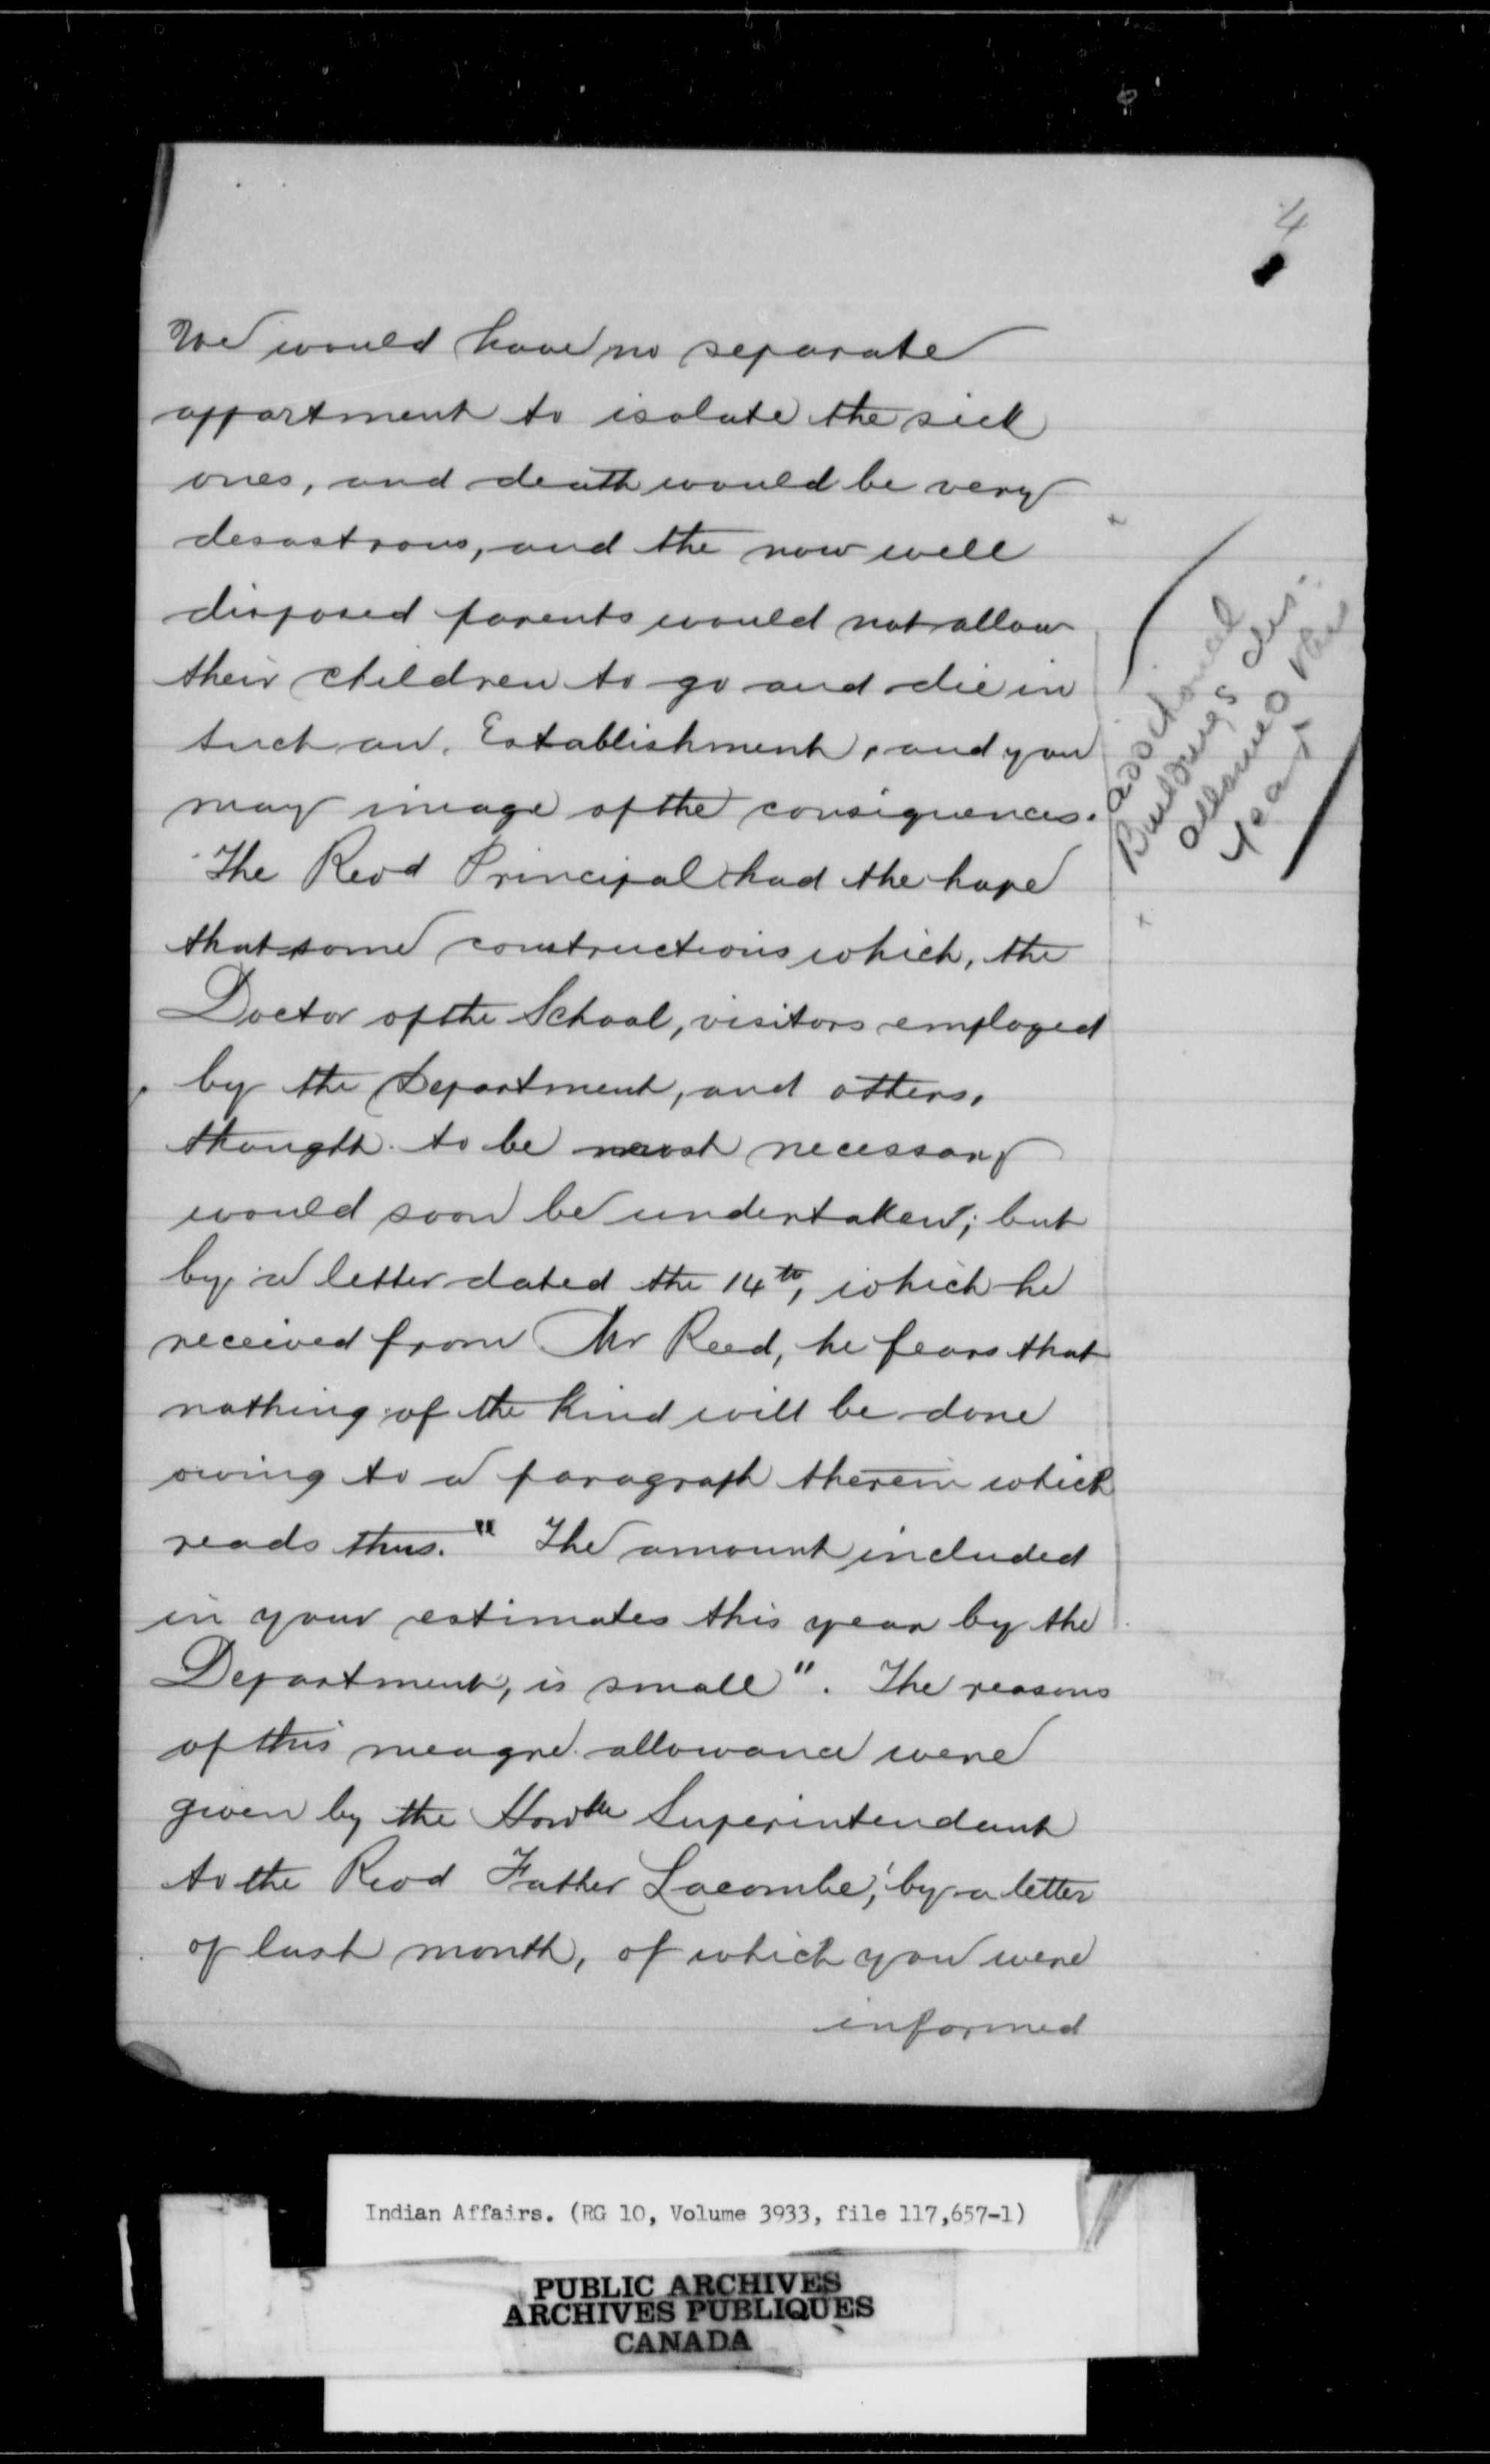 4
We would have no separate
appartment to isolate the sick
ones, and death would be very
desastrous, and the now well
disposed parents would not allow
their children to go and die in
such an Establishment, and you
may image of the consequences.
The Revd Principal had the hope
that some constructions which, the
Doctor of the School, visitors employed
by the Department, and others,
thought to be most necessary
would soon be undertaken; but
by a letter dated the 14th, which he
received from Mr Reed, he fears that
nothing of the kind will be done
owing to a paragraph therein which
reads thus. " The amount included
in your estimates this year by the
Department, is small". The reasons
of this meagre allowance were
given by the Honble Superintendant
to the Revd Father Lacombe, by a letter
of last month, of which you were
informed
Additional
Buildings dis-
allowed this
year
Indian Affairs. (RG 10, Volume 3933, file 117,657-1)
PUBLIC ARCHIVES
ARCHIVES PUBLIQUES
CANADA